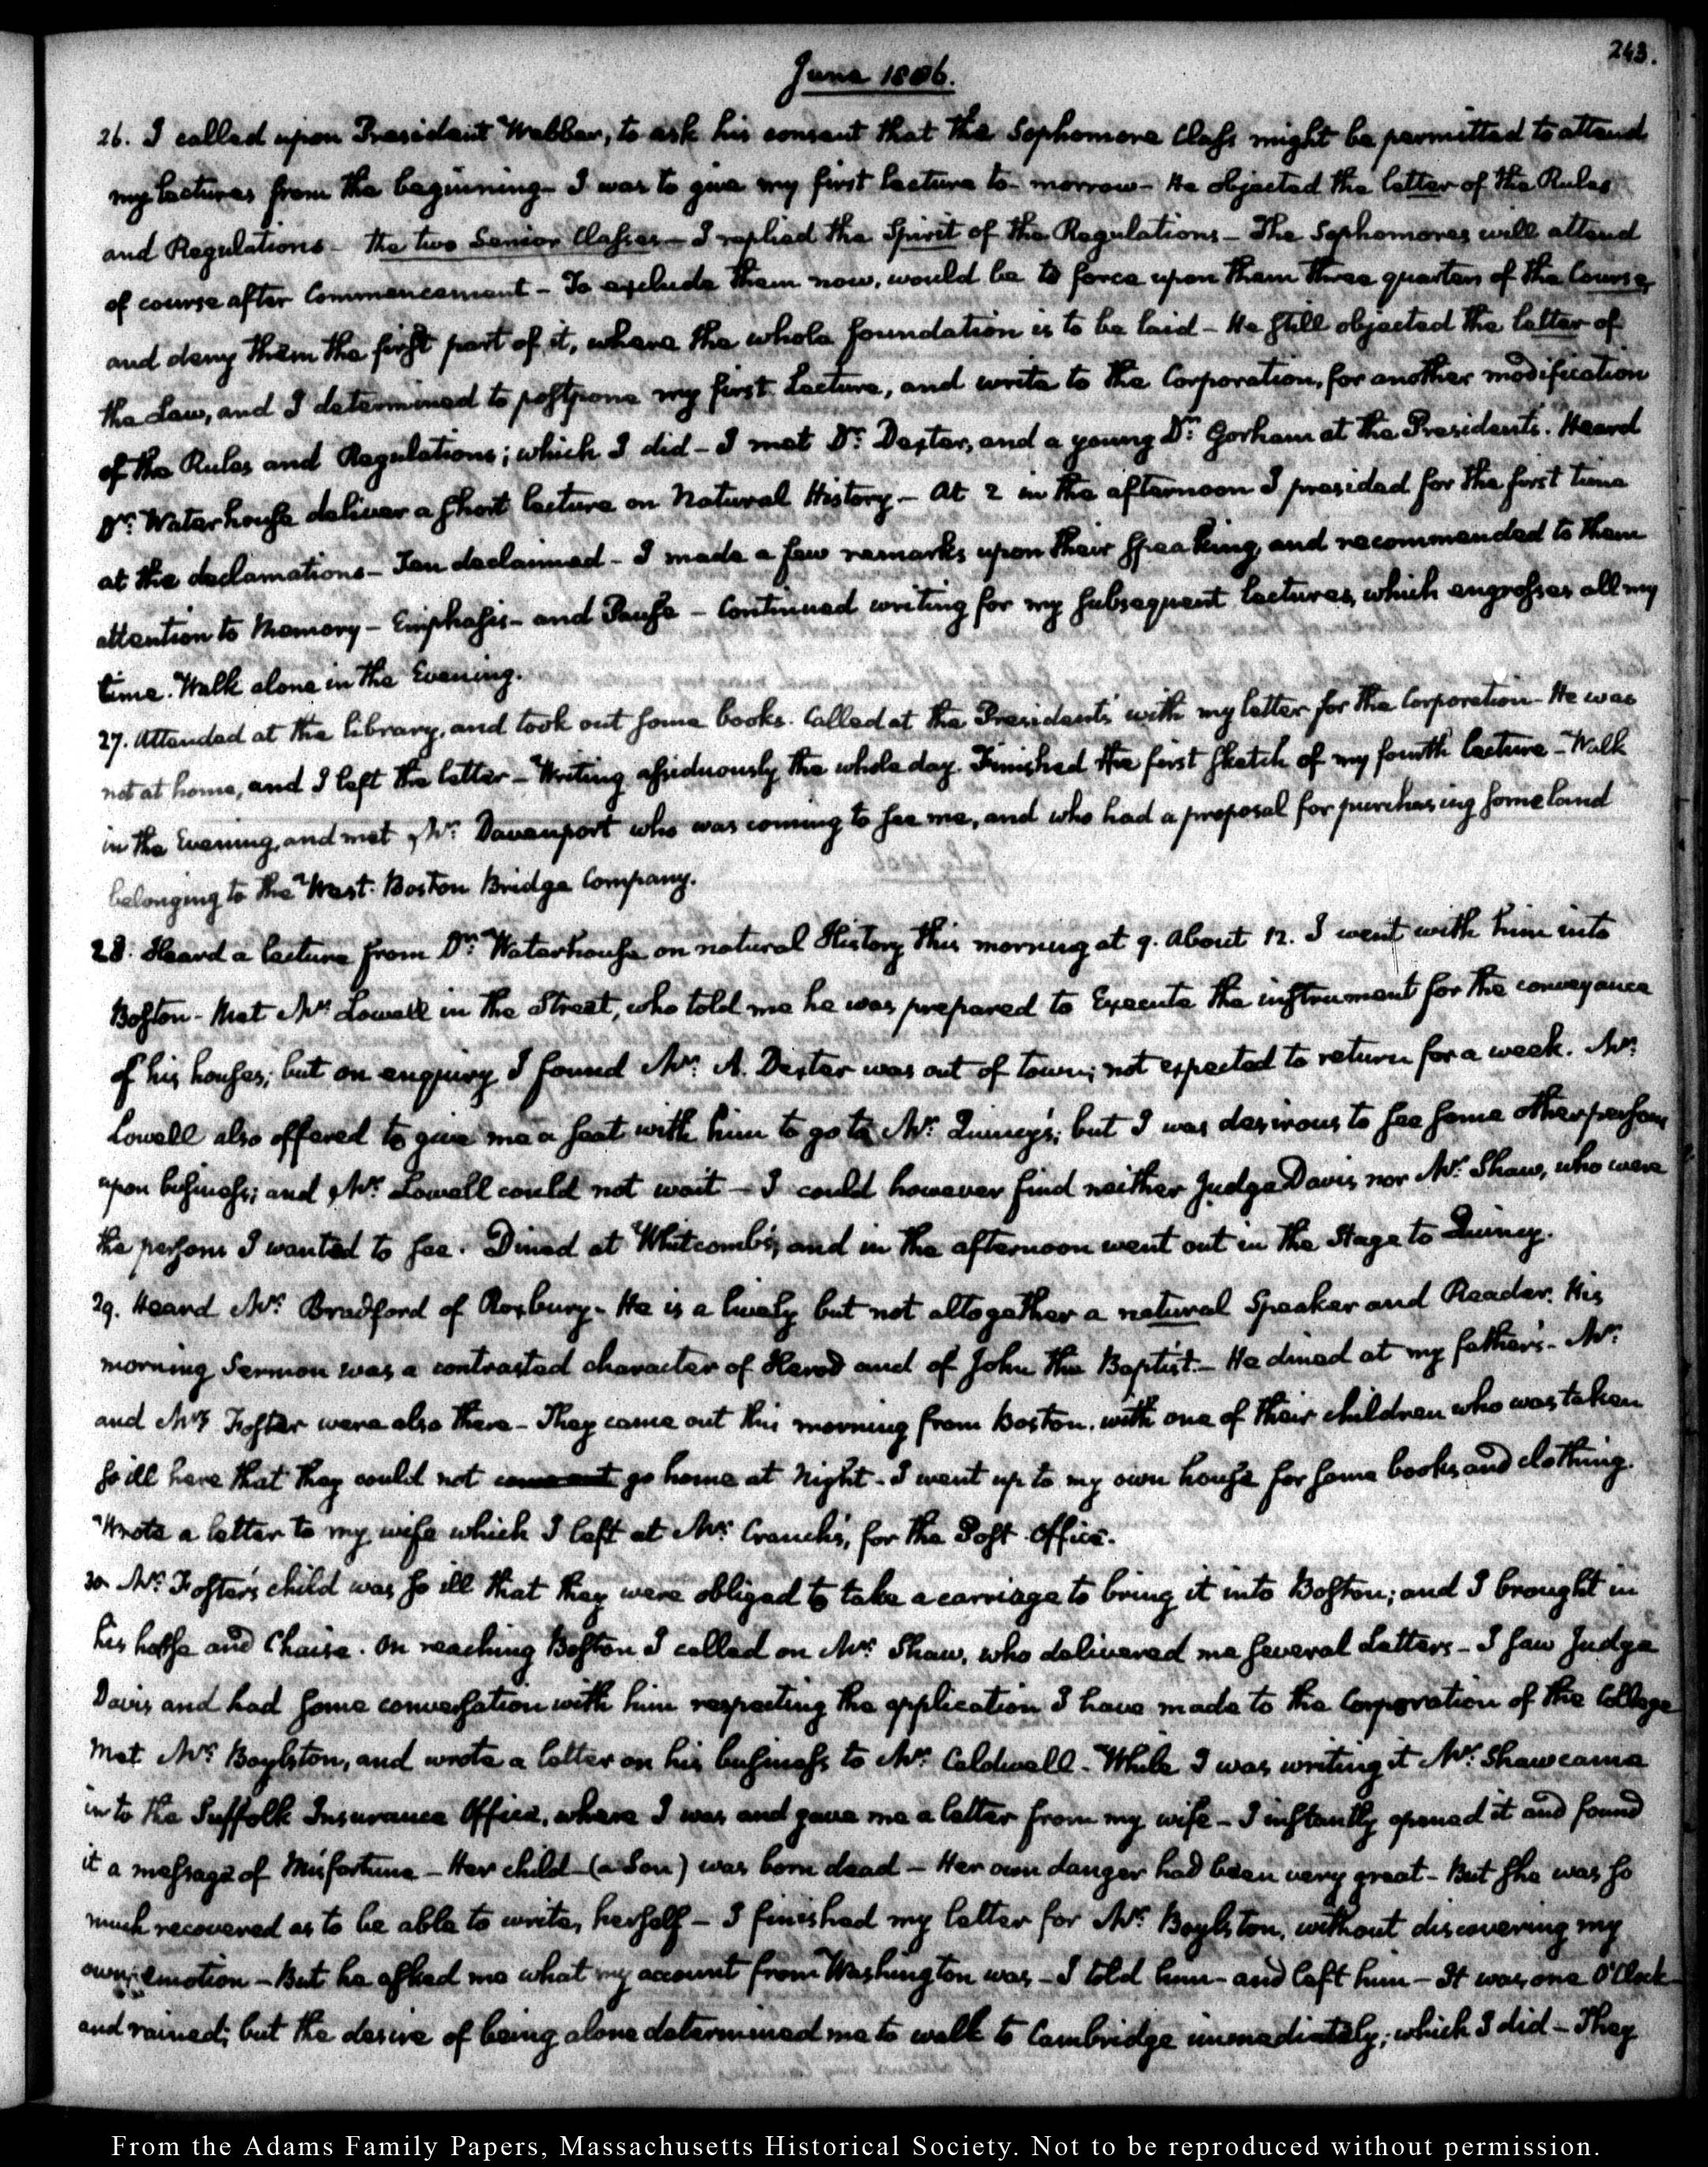 243.
June 1806.
26. I called upon President Webber, to ask his consent that the Sophomore Class might be permitted to attend
my lectures from the beginning - I was to give my first lecture to-morrow - He objected the letter of the Rules
and Regulations - the two Senior Classes - I replied the Spirit of the Regulations - The Sophomores will attend
of course after Commencement - To exclude them now, would be to force upon them three quarters of the Course,
and deny them the first part of it, where the whole foundation is to be laid - He still objected the letter of
the Law, and I determined to postpone my first Lecture, and write to the Corporation, for another modification
of the Rules and Regulations; which I did - I met Dr. Dexter, and a young Dr. Gorham at the Presidents. Heard
Dr. Waterhouse deliver a short lecture on Natural History - At 2 in the afternoon I presided for the first time
at the declamations - Ten declaimed - I made a few remarks upon their speaking, and recommended to them
attention to Memory - Emphasis - and Pause - Continued writing for my subsequent lectures, which engrosses all my
time. Walk alone in the Evening.
27. Attended at the library, and took out some books. Called at the Presidents with my letter for the Corporation - He was
not at home, and I left the letter - Writing assiduously the whole day. Finished the first sketch of my fourth lecture - Walk
in the Evening, and met Mr. Davenport who was coming to see me, and who had a proposal for purchasing some land
belonging to the West-Boston Bridge Company.
28. Heard a lecture from Dr. Waterhouse on natural History this morning at 9. About 12. I went with him into
Boston - Met Mr. Lowell in the Street, who told me he was prepared to Execute the instrument for the conveyance
of his houses; but on enquiry I found Mr. A. Dexter was out of town; not expected to return for a week. Mr.
Lowell also offered to give me a seat with him to go to Mr. Quincy's; but I was desirous to see some other persons
upon business; and Mr. Lowell could not wait - I could however find neither Judge Davis nor Mr. Shaw, who were
the persons I wanted to see. Dined at Whitcomb's, and in the afternoon went out in the Stage to Quincy.
29. Heard Mr. Bradford of Roxbury - He is a lively but not altogether a natural Speaker and Reader. His
morning Sermon was a contrasted character of Herod and of John the Baptist. - He dined at my father's - Mr.
and Mrs Foster were also there - They came out this morning from Boston, with one of their children who was taken
so ill here that they could not go home at Night - I went up to my own house for some books and clothing.
Wrote a letter to my wife which I left at Mr. Cranch's, for the Post-Office.
30. Mr. Foster's child was so ill that they were obliged to take a carriage to bring it into Boston; and I brought in
his horse and Chaise. On reaching Boston I called on Mr. Shaw, who delivered me several Letters - I saw Judge
Davis and had some conversation with him respecting the application I have made to the Corporation of the College
Met Mr. Boylston, and wrote a letter on his business to Mr. Caldwell - While I was writing it Mr. Shaw came
in to the Suffolk Insurance Office, where I was and gave me a letter from my wife - I instantly opened it and found
it a message of Misfortune - Her child - (a Son) was born dead - Her own danger had been very great - But she was so
much recovered as to be able to write, herself - I finished my letter for Mr. Boylston, without discovering my
own emotion - But he asked me what my account from Washington was - I told him - and left him - It was one O'Clock
and rained; but the desire of being alone determined me to walk to Cambridge immediately; which I did - They
From the Adams Family Papers, Massachusetts Historical Society. Not to be reproduced without permission.